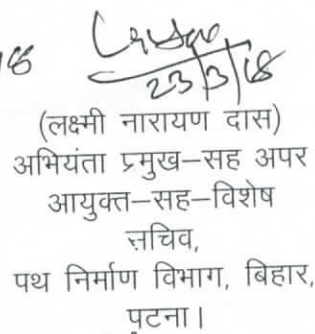 18
23/3/18
(लक्ष्मी नारायण दास)
अभियंता प्रमुख–सह अपर
आयुक्त–सह–विशेष
सचिव,
पथ निर्माण विभाग, बिहार,
पटना।